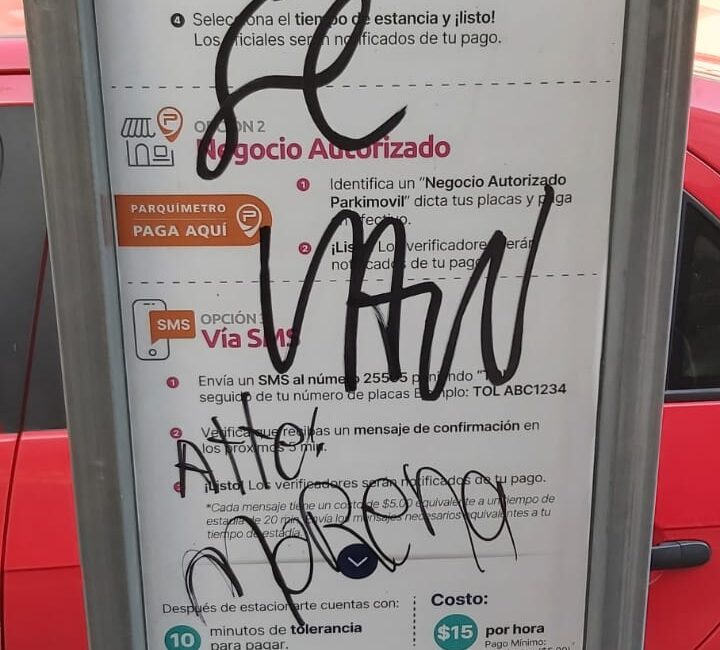 4 Selecciona el tiempo de estancia y ¡listo!
Los oficiales serán notificados de tu pago.
SE
OPCIÓN 2
Negocio Autorizado
1 Identifica un "Negocio Autorizado
Parkimovil" dicta tus placas y paga
en efectivo.
PARQUÍMETRO
PAGA AQUÍ
2 ¡Listo! Los verificadores serán
notificados de tu pago.
VAN
SMS
OPCIÓN 3
Vía SMS
1 Envía un SMS al número 25565 poniendo "TOL"
seguido de tu número de placas Ejemplo: TOL ABC1234
2 Verifica que recibas un mensaje de confirmación en
los próximos 5 min.
Atte:
3 ¡Listo! Los verificadores serán notificados de tu pago.
*Cada mensaje tiene un costo de $5.00 equivalente a un tiempo de
estadía de 20 min. Envía los mensajes necesarios equivalentes a tu
tiempo de estadía.
MoRena
Después de estacionarte cuentas con:
10 minutos de tolerancia
para pagar.
Costo:
$15 por hora
Pago Mínimo: